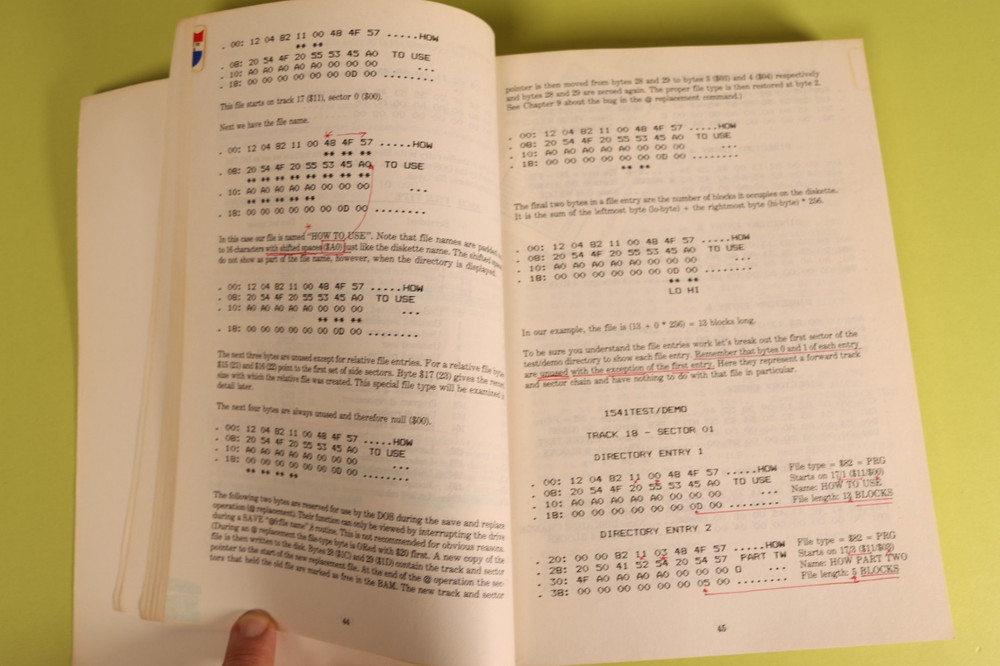 . 00: 12 04 82 11 00 48 4F 57 .....HOW
** **
. 08: 20 54 4F 20 55 53 45 A0 TO USE
. 10: A0 A0 A0 A0 A0 00 00 00 ...
. 18: 00 00 00 00 00 00 0D 00 ........
This file starts on track 17 ($11), sector 0 ($00).
Next we have the file name.
. 00: 12 04 82 11 00 48 4F 57 .....HOW
** ** **
. 08: 20 54 4F 20 55 53 45 A0 TO USE
** ** ** ** ** ** ** **
. 10: A0 A0 A0 A0 A0 00 00 00 ...
** ** ** ** **
. 18: 00 00 00 00 00 00 0D 00 ........
In this case our file is named "HOW TO USE". Note that file names are padded
to 16 characters with shifted spaces ($A0) just like the diskette name. The shifted
do not show as part of the file name, however, when the directory is displayed.
. 00: 12 04 82 11 00 48 4F 57 .....HOW
. 08: 20 54 4F 20 55 53 45 A0 TO USE
. 10: A0 A0 A0 A0 A0 00 00 00 ...
** ** **
. 18: 00 00 00 00 00 00 0D 00 ........
The next three bytes are unused except for relative file entries. For a relative file
$15 (21) and $16 (22) point to the first set of side sectors. Byte $17 (23) gives the
size with which the relative file was created. This special file type will be examined
detail later.
The next four bytes are always unused and therefore null ($00).
. 00: 12 04 82 11 00 48 4F 57 .....HOW
. 08: 20 54 4F 20 55 53 45 A0 TO USE
. 10: A0 A0 A0 A0 A0 00 00 00 ...
. 18: 00 00 00 00 00 00 0D 00 ........
** ** ** **
The following two bytes are reserved for use by the DOS during the save and replace
operation (@ replacement). Their function can only be viewed by interrupting the drive
during a SAVE "@0:file name" A routine. This is not recommended for obvious reasons.
(During an @ replacement the file-type byte is ORed with $20 first. A new copy of the
file is then written to the disk. Bytes 28 ($1C) and 29 ($1D) contain the track and sector
pointer to the start of the new replacement file. At the end of the @ operation the sec-
tors that held the old file are marked as free in the BAM. The new track and sector
44
pointer is then moved from bytes 28 and 29 to bytes 3 ($03) and 4 ($04) respectively
and bytes 28 and 29 are zeroed again. The proper file type is then restored at byte 2.
See Chapter 9 about the bug in the @ replacement command.)
. 00: 12 04 82 11 00 48 4F 57 .....HOW
. 08: 20 54 4F 20 55 53 45 A0 TO USE
. 10: A0 A0 A0 A0 A0 00 00 00 ...
. 18: 00 00 00 00 00 00 0D 00 ........
** **
The final two bytes in a file entry are the number of blocks it occupies on the diskette.
It is the sum of the leftmost byte (lo-byte) + the rightmost byte (hi-byte) * 256.
. 00: 12 04 82 11 00 48 4F 57 .....HOW
. 08: 20 54 4F 20 55 53 45 A0 TO USE
. 10: A0 A0 A0 A0 A0 00 00 00 ...
. 18: 00 00 00 00 00 00 0D 00 ........
** **
LO HI
In our example, the file is (13 + 0 * 256) = 13 blocks long.
To be sure you understand the file entries work let's break out the first sector of the
test/demo directory to show each file entry. Remember that bytes 0 and 1 of each entry
are unused with the exception of the first entry. Here they represent a forward track
and sector chain and have nothing to do with that file in particular.
1541TEST/DEMO
TRACK 18 - SECTOR 01
DIRECTORY ENTRY 1
. 00: 12 04 82 11 00 48 4F 57 .....HOW File type = $82 = PRG
. 08: 20 54 4F 20 55 53 45 A0 TO USE Starts on 17/1 ($11/$00)
. 10: A0 A0 A0 A0 A0 00 00 00 ... Name: HOW TO USE
. 18: 00 00 00 00 00 00 0D 00 ........ File length: 13 BLOCKS
DIRECTORY ENTRY 2
. 20: 00 00 82 11 03 48 4F 57 .....HOW File type = $82 = PRG
. 28: 20 50 41 52 54 20 54 57 PART TW Starts on 17/3 ($11/$03)
. 30: 4F A0 A0 A0 A0 00 00 00 O ... Name: HOW PART TWO
. 38: 00 00 00 00 00 00 05 00 ........ File length: 5 BLOCKS
45